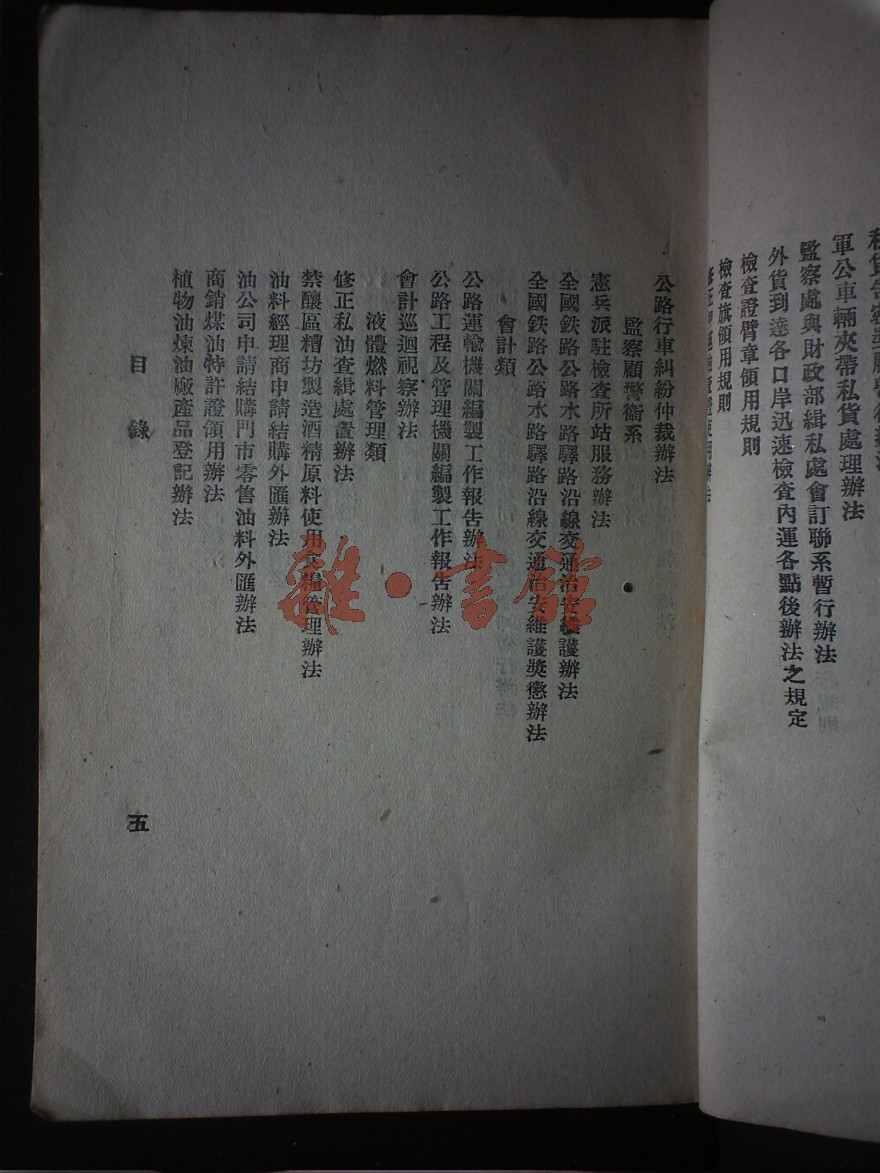 軍公車輛夾帶私貨處理辦法
監察處與財政部緝私處會訂聯系暫行辦法
外貨到達各口岸迅速檢查內運各點後辦法之規定
檢查證臂章領用規則
檢查旗領用規則
公路行車糾紛仲裁辦法
監察顧警衞系
憲兵派駐檢查所站服務辦法
全國鉄路公路水路驛路沿線交通治安維護辦法
全國鉄路公路水路驛路沿線交通治安維護奬懲辦法
會計類
公路運輸機關編製工作報告辦法
公路工程及管理機關編製工作報告辦法
會計巡迴視察辦法
液體燃料管理類
修正私油查緝處置辦法
禁釀區糟坊製造酒精原料使用食糧管理辦法
油料經理商申請結購外匯辦法
油公司申請結購門市零售油料外匯辦法
商銷煤油特許證領用辦法
植物油煉油廠產品登記辦法
目錄
五
雜·書館